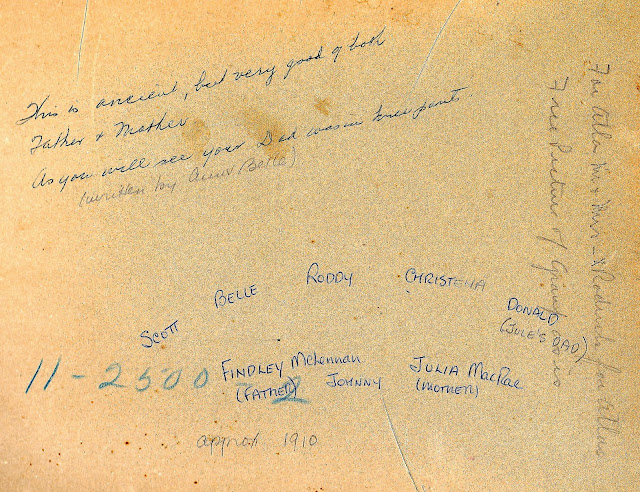 This is ancient, but very good of both
Father & Mother
As you will see your Dad was in knee pants
(written by Aunt Belle)
SCOTT BELLE RODDY CHRISTENA DONALD
(JULE'S DAD)
FINDLEY McLennan JOHNNY JULIA MacRae
(FATHER) (MOTHER)
11-2500-2
approx 1910
& Mrs
Picture of